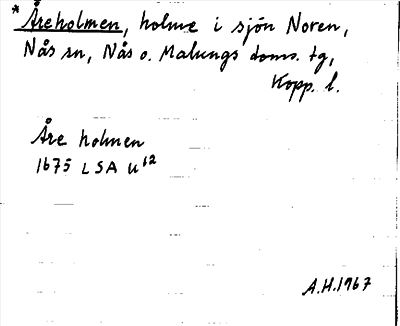 * Åreholmen, holme i sjön Noren,
Nås sn, Nås o. Malungs doms. tg,
Kopp. l.
Åre holmen
1675 LSA U 12
A.H. 1967